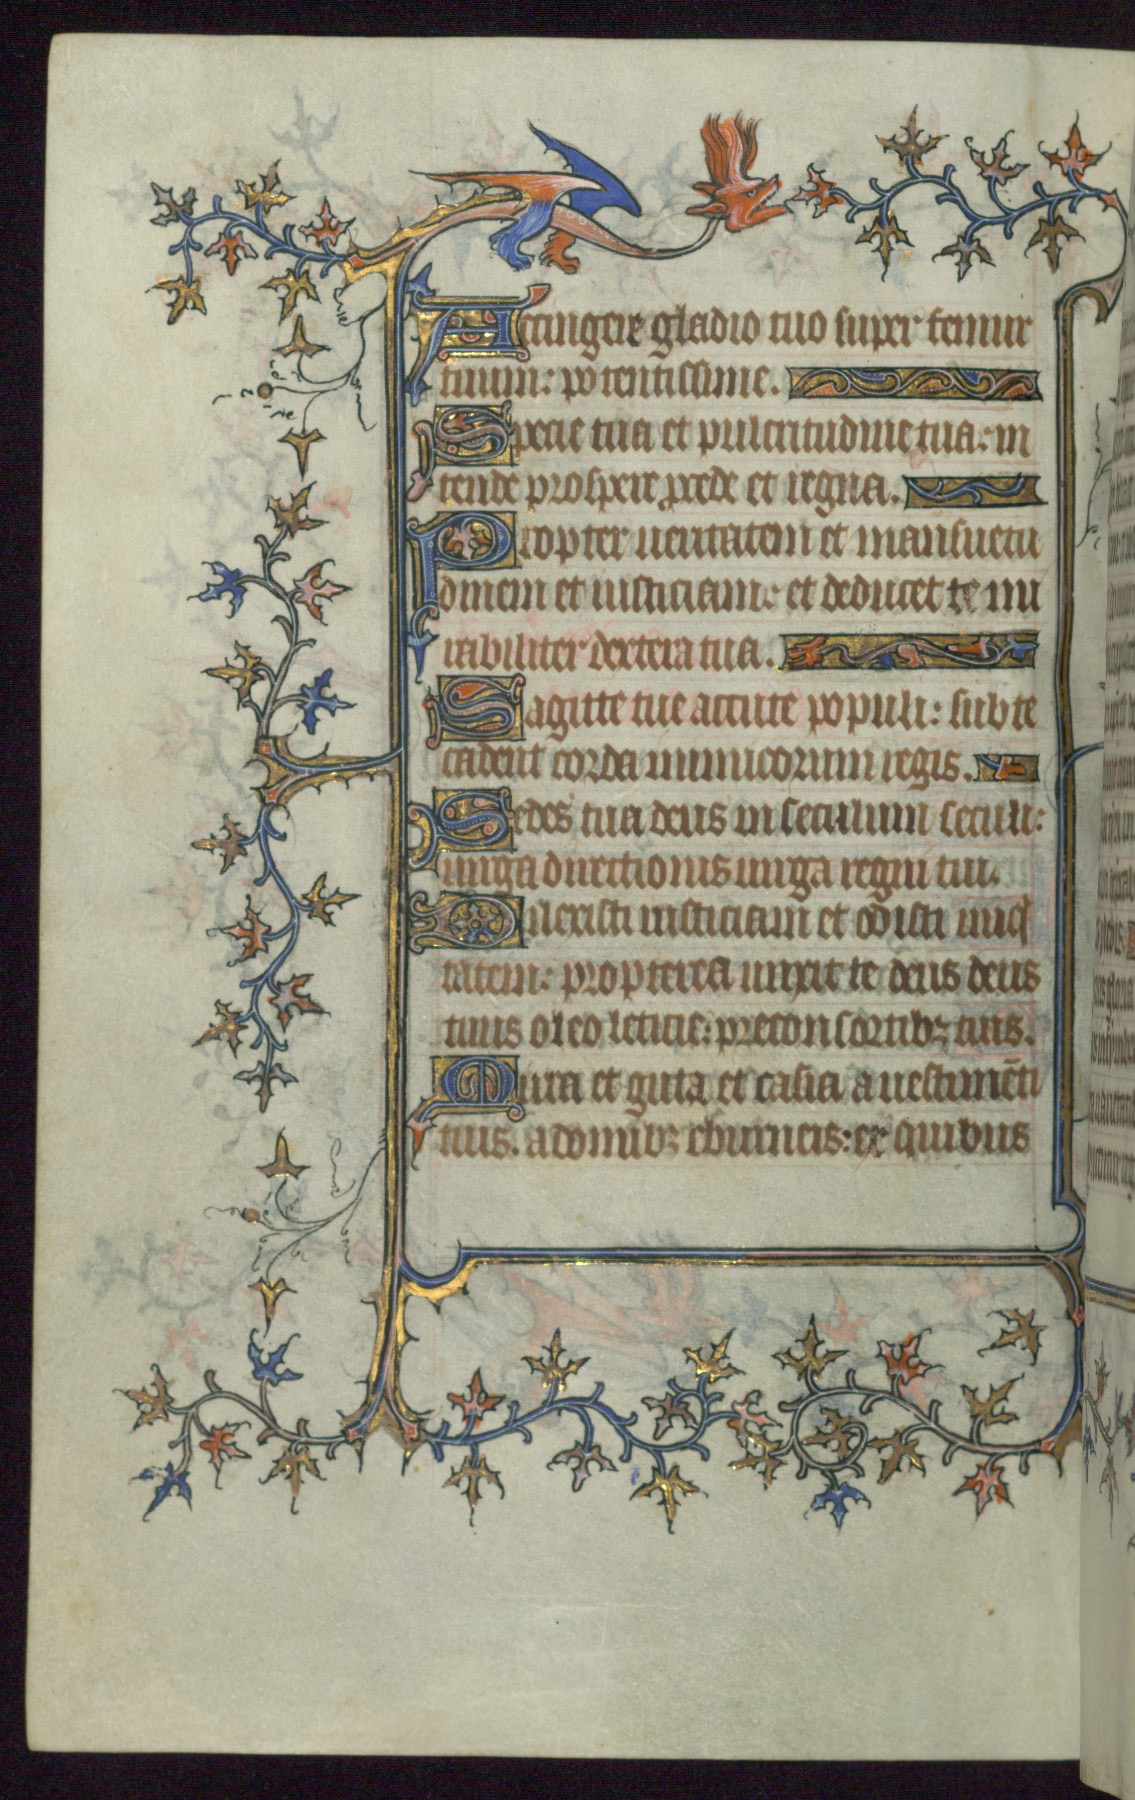 Accingere gladio tuo super femur
tuum: potentissime.
Specie tua et pulcritudine tua: in
tende prospere procede et regna.
Propter ueritatem et mansuetu
dinem et iusticiam: et deducet te mi
rabiliter dextera tua.
Sagitte tue accute populi: sub te
cadent corda inimicorum regis.
Sedes tua deus in seculum seculi:
uirga directionis uirga regni tui.
Dilexisti iusticiam et odisti iniq
tatem: propterea unxit te deus deus
tuus oleo leticie: pre consortibꝫ tuis.
Mirra et guta et casia a uestimēti
tuis. a domibꝫ eburneis: ex quibus